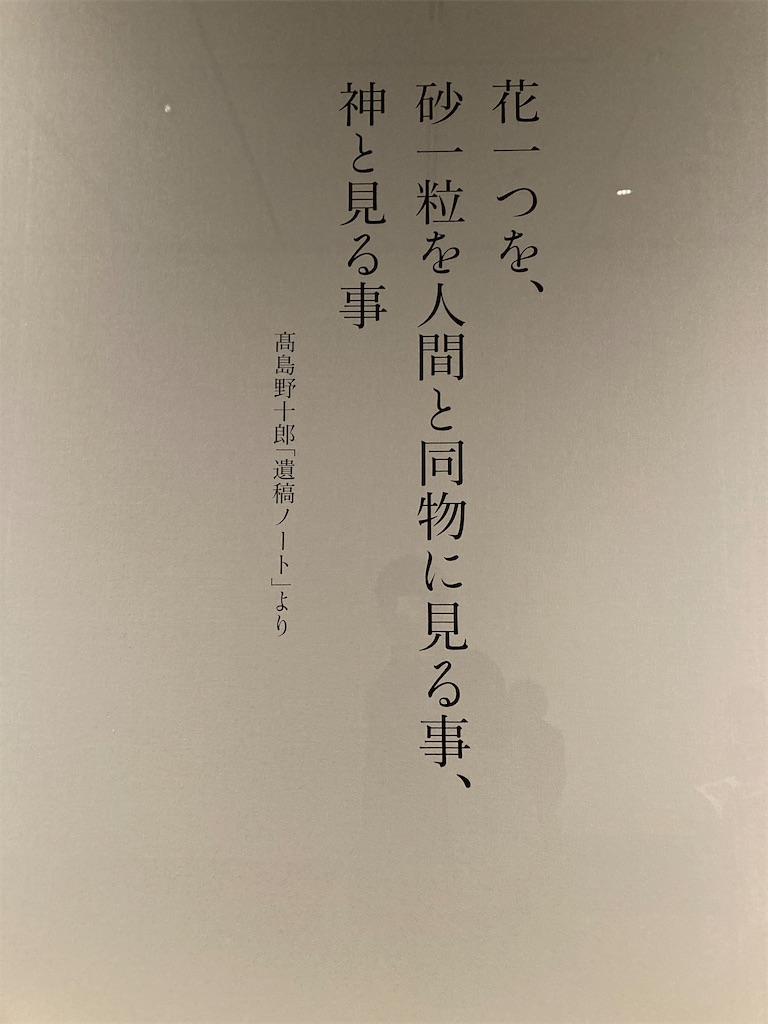 花一つを、
砂一粒を人間と同物に見る事、
神と見る事
髙島野十郎「遺稿ノート」より